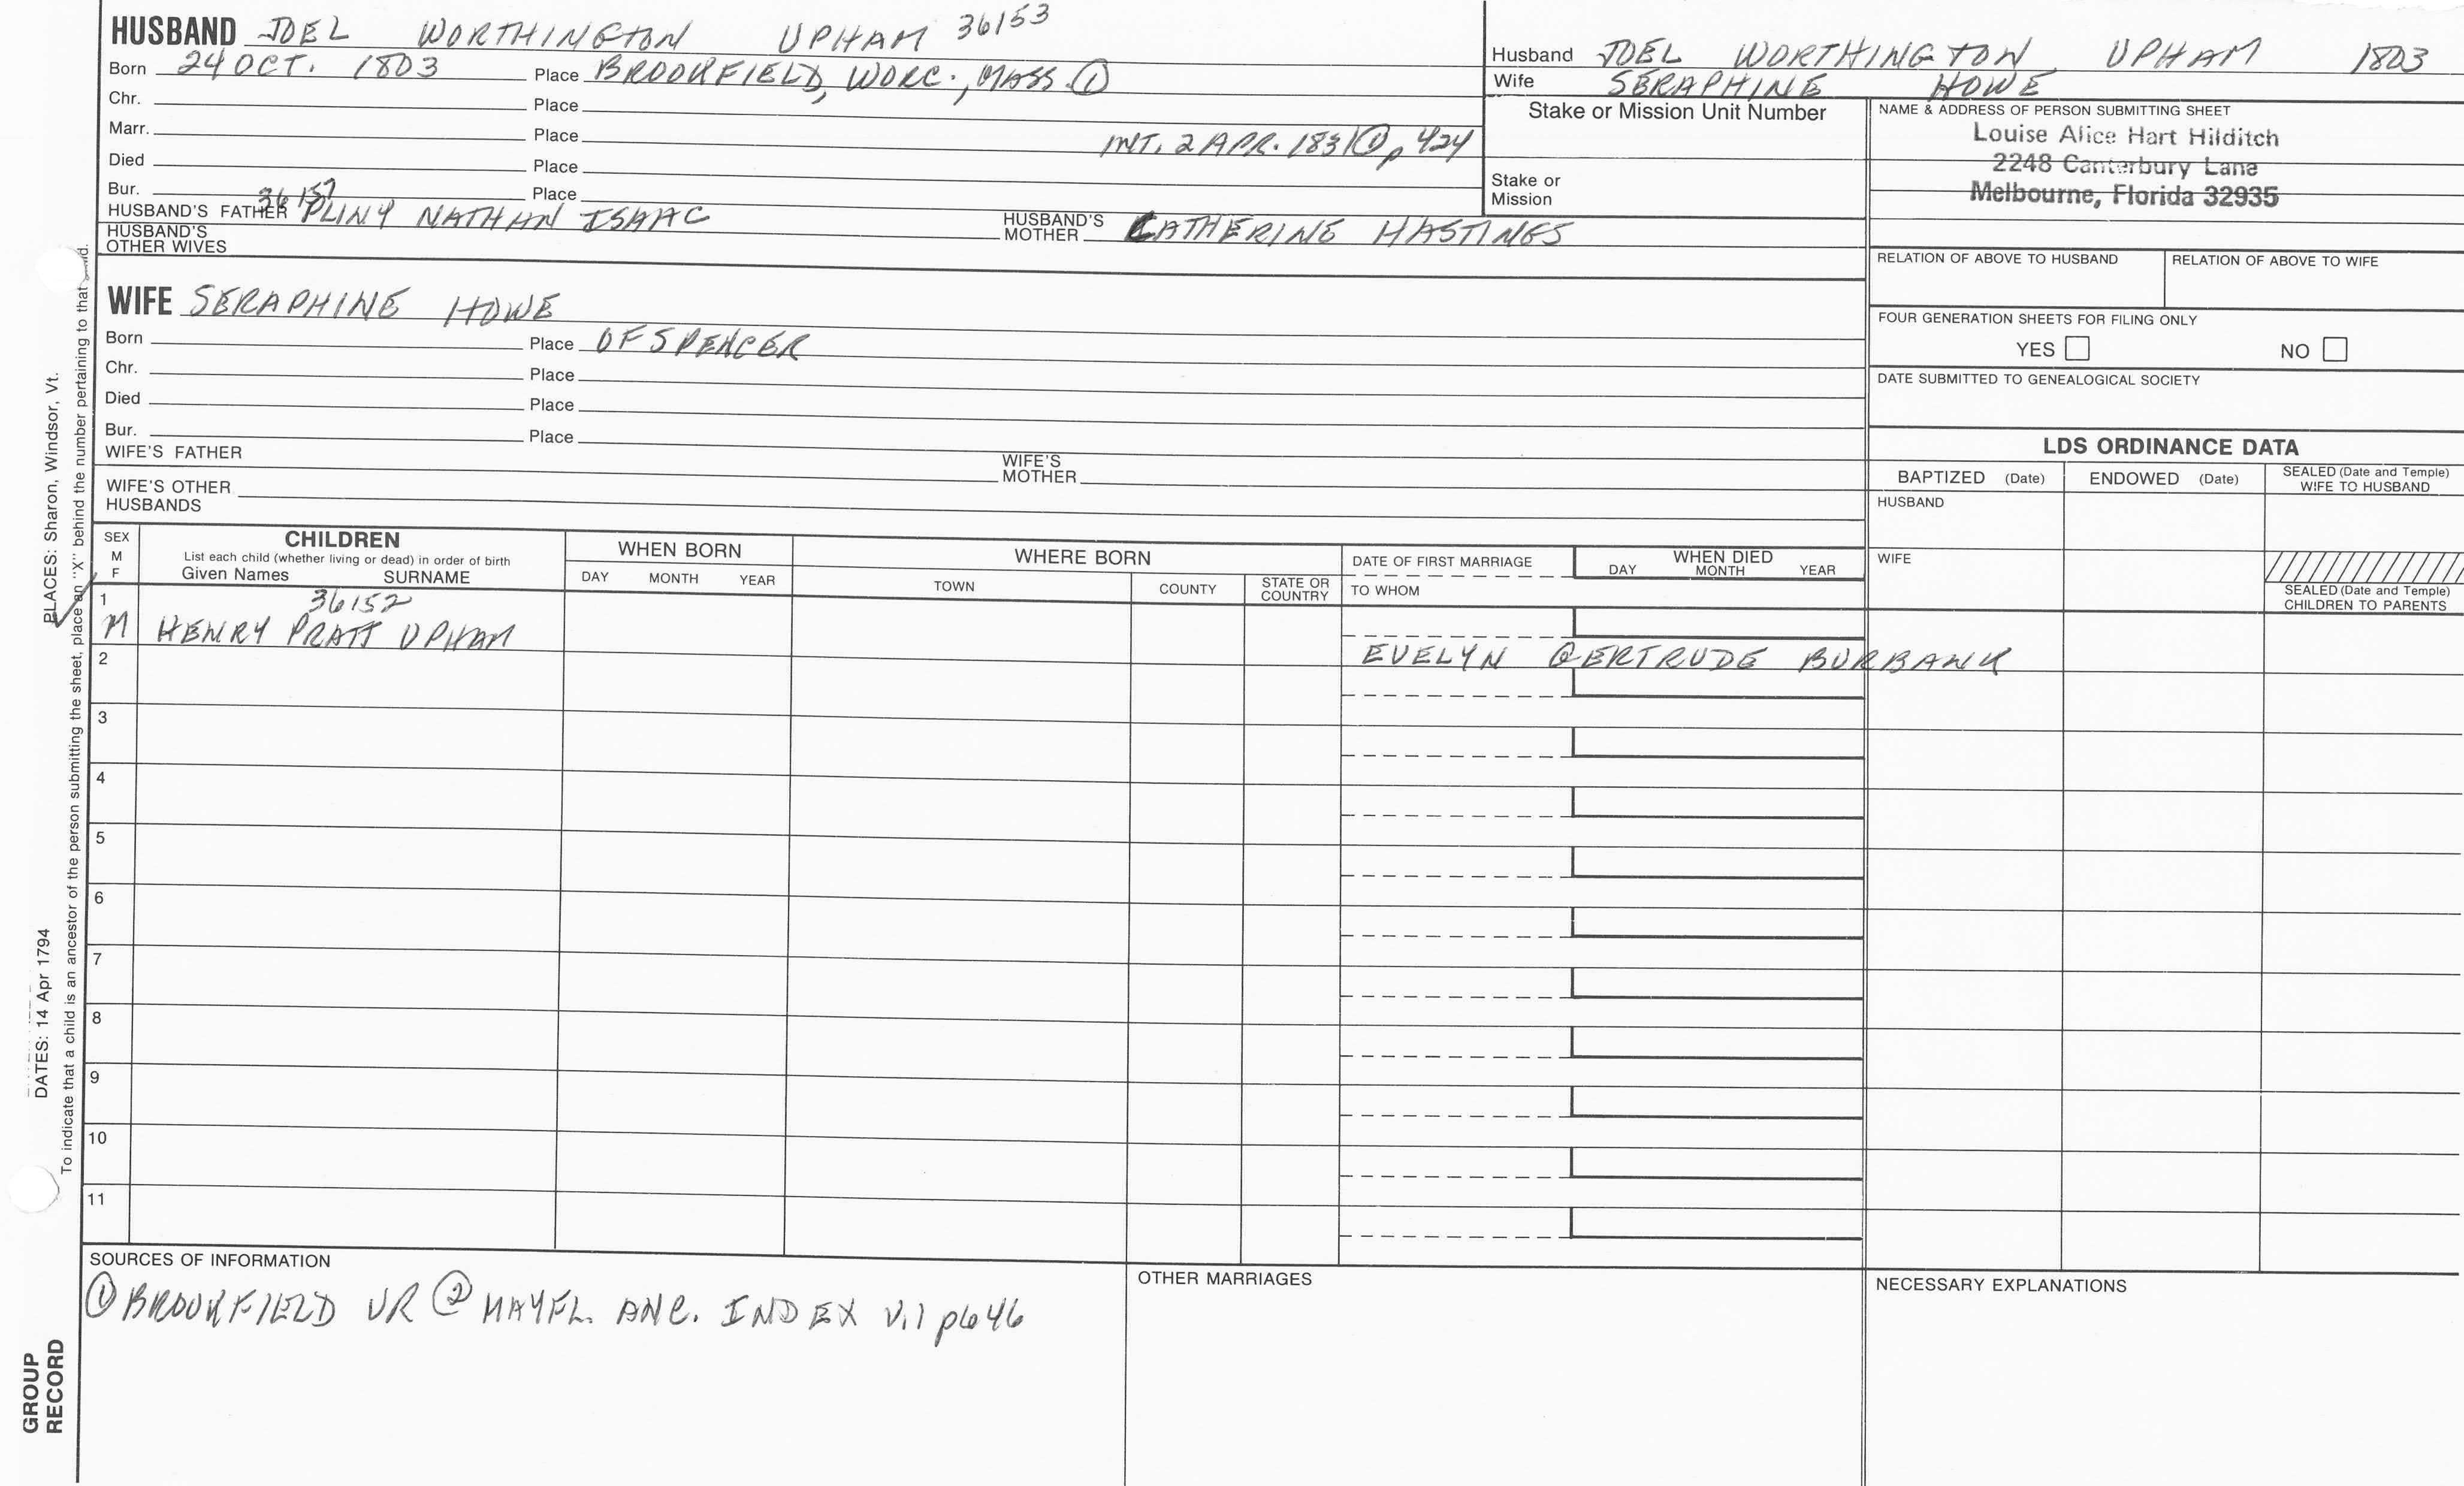 HUSBAND JOEL WORTHINGTON UPHAM 36153
Born 24 OCT. 1803 Place BROOKFIELD, WORC., MASS. ①
Chr. Place
Marr. Place INT. 2 APR. 1831 ① p 424
Died Place
Bur. Place
36157
HUSBAND'S FATHER PLINY NATHAN ISAAC HUSBAND'S MOTHER CATHERINE HASTINGS
HUSBAND'S OTHER WIVES
Husband JOEL WORTHINGTON UPHAM 1803
Wife SERAPHINE HOWE
Stake or Mission Unit Number
Stake or Mission
NAME & ADDRESS OF PERSON SUBMITTING SHEET
Louise Alice Hart Hilditch
2248 Canterbury Lane
Melbourne, Florida 32935
RELATION OF ABOVE TO HUSBAND RELATION OF ABOVE TO WIFE
FOUR GENERATION SHEETS FOR FILING ONLY
YES NO
DATE SUBMITTED TO GENEALOGICAL SOCIETY
WIFE SERAPHINE HOWE
Born Place OF SPENCER
Chr. Place
Died Place
Bur. Place
WIFE'S FATHER WIFE'S MOTHER
WIFE'S OTHER HUSBANDS
LDS ORDINANCE DATA
BAPTIZED (Date) ENDOWED (Date) SEALED (Date and Temple) WIFE TO HUSBAND
HUSBAND
WIFE
SEALED (Date and Temple) CHILDREN TO PARENTS
SEX M F
CHILDREN
List each child (whether living or dead) in order of birth
Given Names SURNAME
WHEN BORN
DAY MONTH YEAR
WHERE BORN
TOWN COUNTY STATE OR COUNTRY
DATE OF FIRST MARRIAGE
TO WHOM
WHEN DIED
DAY MONTH YEAR
1 36152
M HENRY PRATT UPHAM
EVELYN GERTRUDE BURBANK
2
3
4
5
6
7
8
9
10
11
SOURCES OF INFORMATION
① BROOKFIELD VR ② MAYFL. ANC. INDEX V.1 p646
OTHER MARRIAGES
NECESSARY EXPLANATIONS
PLACES: Sharon, Windsor, Vt.
DATES: 14 Apr 1794
To indicate that a child is an ancestor of the person submitting the sheet, place an "X" behind the number pertaining to that
GROUP
RECORD